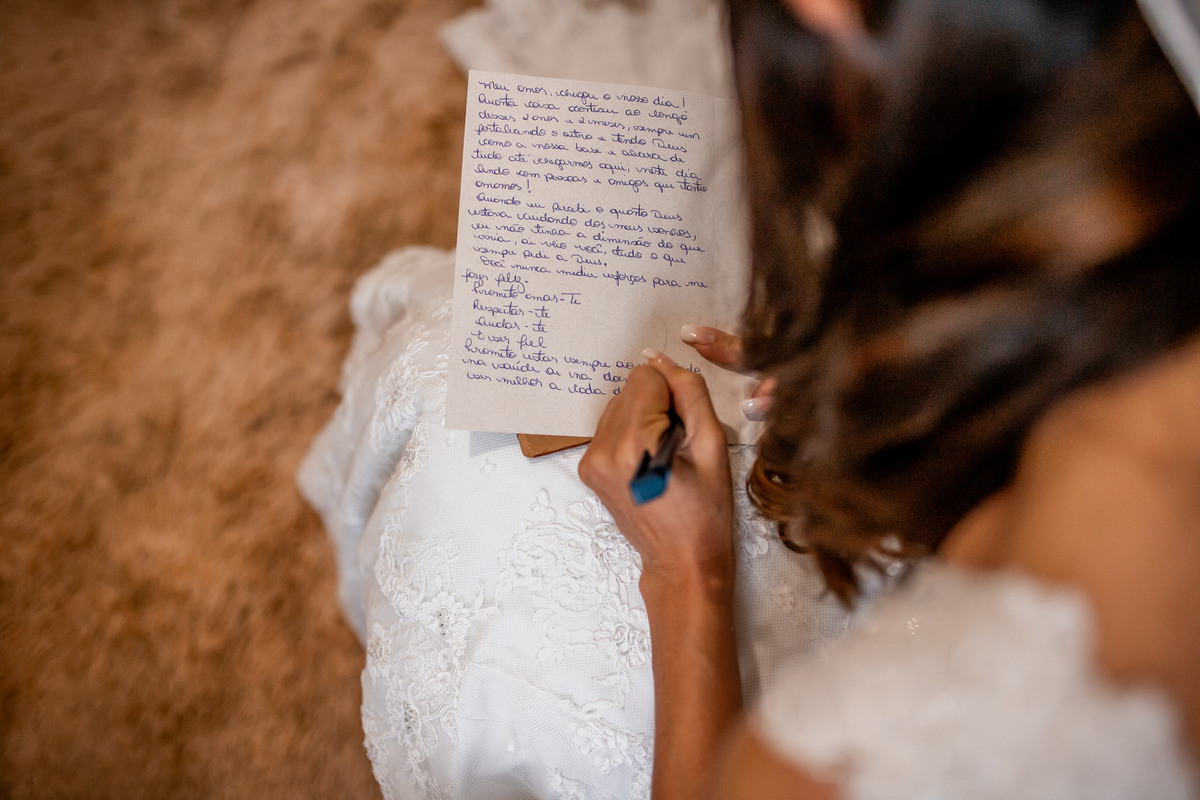 Meu amor, chegou o nosso dia!
Quanta coisa aconteceu ao longo
desses 2 anos e 2 meses, sempre um
fortalecendo o outro e tendo Deus
como a nossa base e alicerce de
tudo até chegarmos aqui, neste dia
lindo com pessoas e amigos que tanto
amamos!
Quando eu percebi o quanto Deus
estava cuidando dos meus sonhos,
eu não tinha a dimensão do que
viria, ai veio você, tudo o que
sempre pedi a Deus.
Você nunca mediu esforços para me
fazer feliz.
Prometo amar-Te
Respeitar-te
Cuidar-te
E ser fiel
Prometo estar sempre ao
na saúde ou na
ser melhor a cada